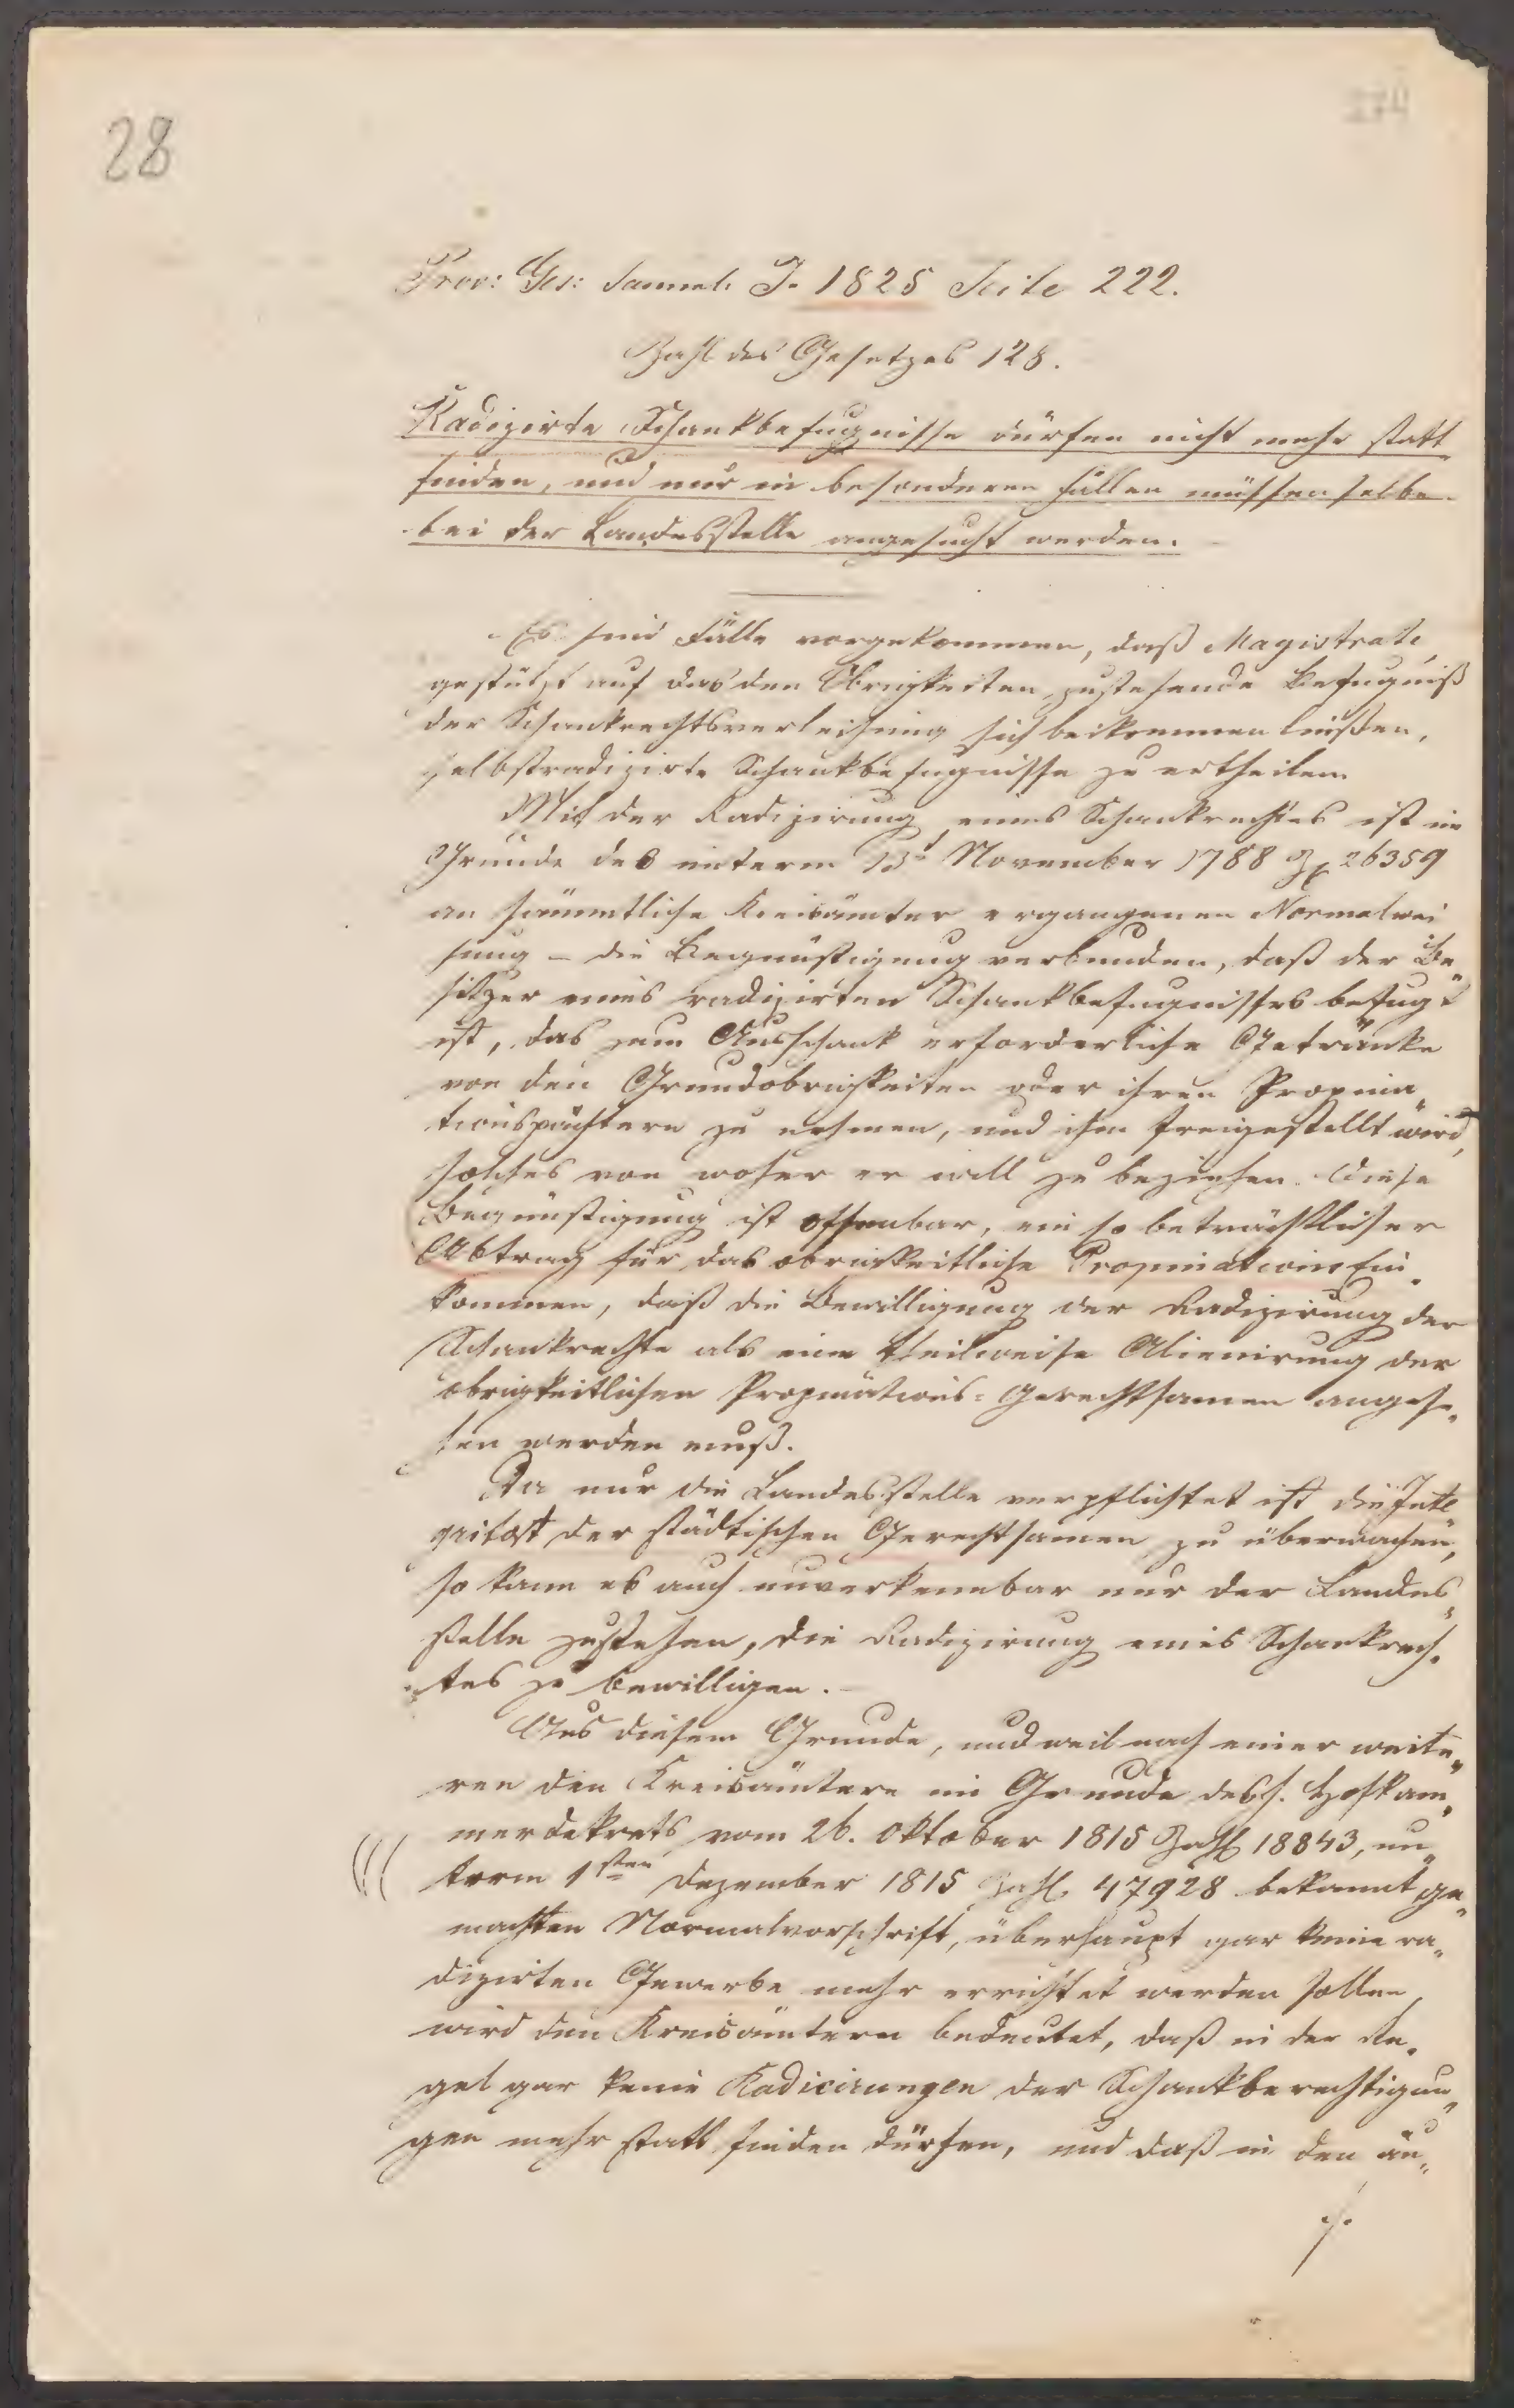 28
274
Prov: Ges: Samml. J. 1825 Seite 222.
Zahl des Gesetzes 128.
Radizirte Schankbefugnisse dürfen nicht mehr statt
finden, und nur in besonderen Fällen müssen selbe
bei der Landesstelle angesucht werden.
Es sind Fälle vorgekommen, daß Magistrate,
gestützt auf das den Obrigkeiten zustehende Befugniß
der Schankrechtsverleihung sich beikommen ließen,
selbst radizirte Schankbefugnisse zu ertheilen.
Mit der Radizirung eines Schankrechtes ist im
Grunde des unterm November 1788 Z. 26359
an sämmtliche Kreisämter ergangenen Normalwei
sung – die Begünstigung verbunden, daß der Be„
sitzer eines radizirten Schankbefugnisses befugt
ist, das zum Ausschank erforderliche Getränke
von den Grundobrigkeiten oder ihren Propina„
tionspächtern zu nehmen, und ihm freigestellt wird,
solches von woher er will zu beziehen. Diese
Begünstigung ist offenbar, ein so beträchtlicher
Abtrag für das obrigkeitliche Propinations Ein„
kommen, daß die Bewilligung der Radizirung der
Schankrechte als eine theilweise Alienirung der
obrigkeitlichen Propinations-Gerechtsamen angese„
hen werden muß.
Da nur die Landesstelle verpflichtet ist die Inte„
gritaet der städtischen Gerechtsamen zu überwachen,
so kann es auch unverkennbar nur der Landes„
stelle zustehen, die Radizirung eines Schankrech„
tes zu bewilligen.
Aus diesem Grunde, und weil nach einer weite„
ren den Kreisämtern im Grunde des h. Hofkam„
merdekrets vom 26. Oktober 1815 Zahl 18843, un„
term 1sten Dezember 1815 Zahl 47928 bekannt ge„
machten Normalvorschrift, überhaupt gar keine ra„
dizirten Gewerbe mehr errichtet werden sollen,
wird den Kreisämtern bedeutet, daß in der Re„
gel gar keine Radicirungen der Schankberechtigun„
gen mehr statt finden dürfen, und daß in den äu„
./.